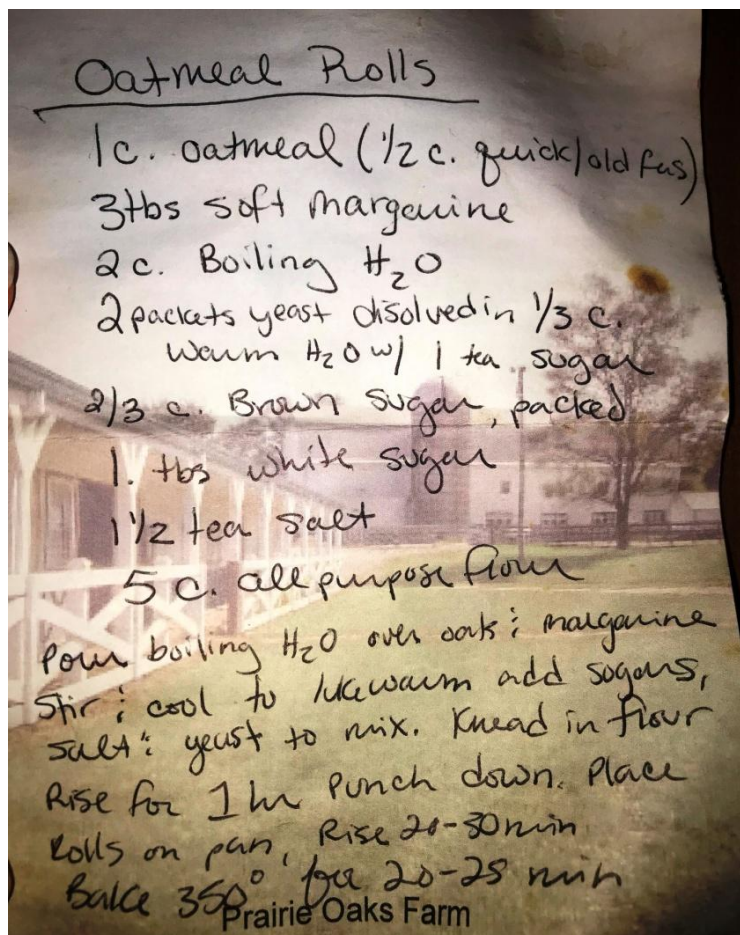 Oatmeal Rolls
1c. oatmeal (1/2 c. quick/old fas)
3tbs soft margarine
2 c. Boiling H₂O
2 packets yeast disolved in 1/3 c.
Warm H₂O w/ 1 tea sugar
2/3 c. Brown sugar, packed
1. tbs white sugar
1 1/2 tea salt
5 c. all purpose flour
Pour boiling H₂O over oats & margarine
Stir & cool to lukewarm add sugars,
salt & yeast to mix. Knead in flour
Rise for 1 hr punch down. Place
Rolls on pan, Rise 20-30 min
Bake 350° for 20-25 min
Prairie Oaks Farm